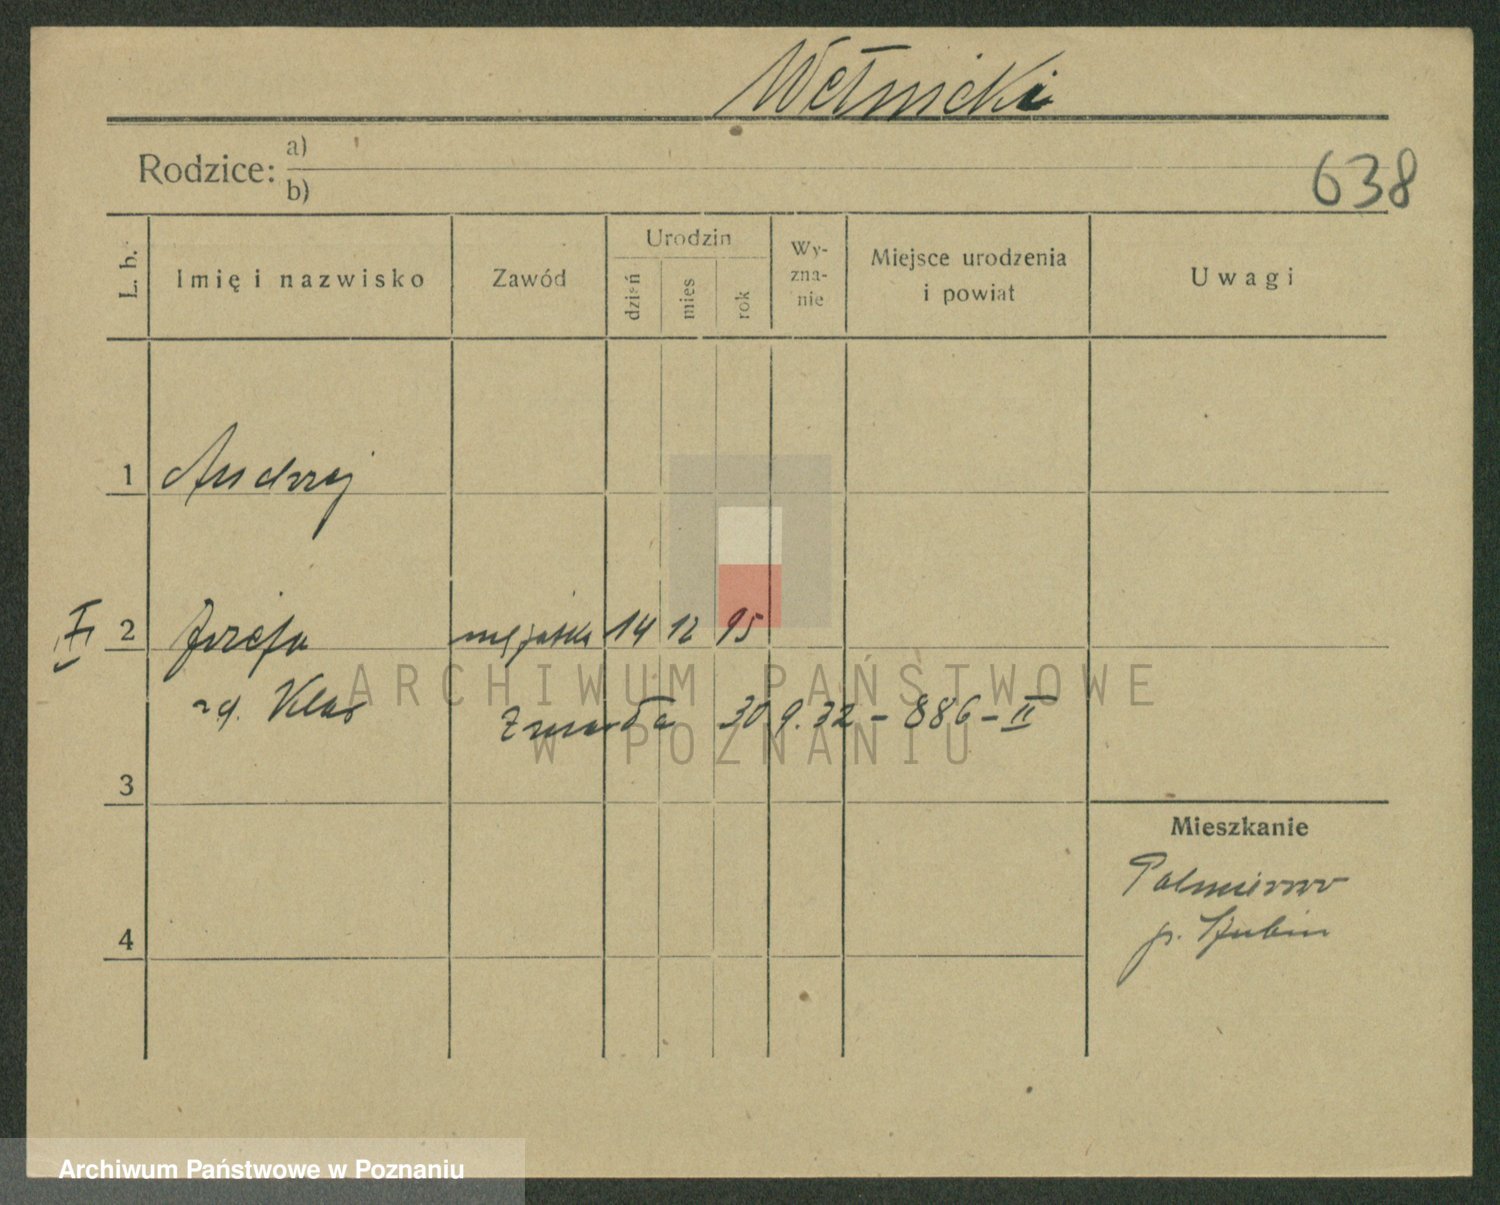 Wełnicki
Rodzice: a)
b)
638
L. b.
Imię i nazwisko
Zawód
Urodzin
dzień
mies
rok
Wy-
zna-
nie
Miejsce urodzenia
i powiat
Uwagi
1 Andrzej
II 2 Józefa mężatka 14 12 95
ARCHIWUM PAŃSTWOWE
W POZNANIU
zd. Klas
Zmarła 30 9.32 – 886 – II
3
Mieszkanie
4
p. Szubin
Archiwum Państwowe w Poznaniu